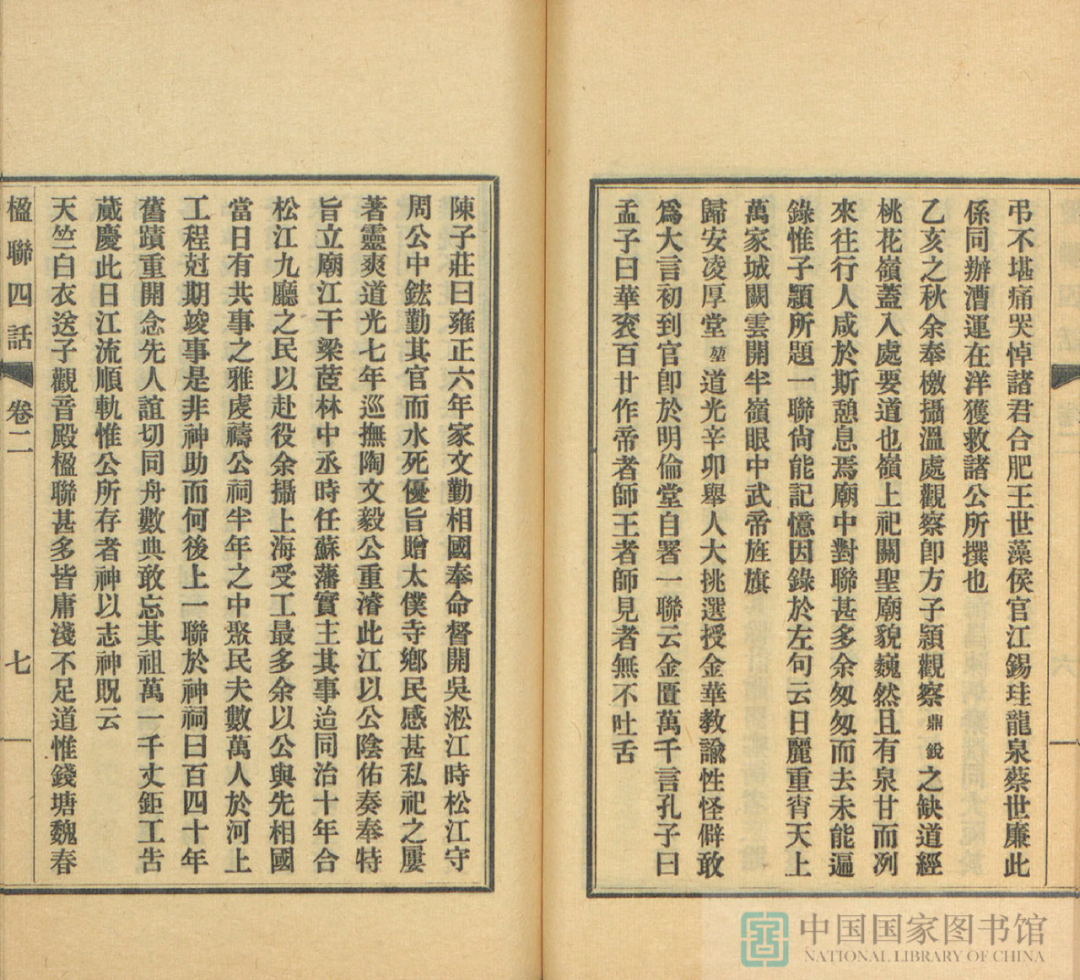 弔不堪痛哭悼諸君合肥王世藻侯官江錫珪龍泉蔡世廉此
係同辦漕運在洋獲救諸公所撰也
乙亥之秋余奉檄攝溫處觀察卽方子穎觀察鼎銳之缺道經
桃花嶺蓋入處要道也嶺上祀關聖廟貌巍然且有泉甘而冽
來往行人咸於斯憩息焉廟中對聯甚多余匆匆而去未能遍
錄惟子穎所題一聯尙能記憶因錄於左句云日麗重霄天上
萬家城闕雲開半嶺眼中武帝旌旗
歸安凌厚堂堃道光辛卯舉人大挑選授金華教諭性怪僻敢
爲大言初到官卽於明倫堂自署一聯云金匱萬千言孔子曰
孟子曰華袞百廿作帝者師王者師見者無不吐舌
陳子莊曰雍正六年家文勤相國奉命督開吳淞江時松江守
周公中鋐勤其官而水死優旨贈太僕寺鄉民感甚私祀之屢
著靈爽道光七年巡撫陶文毅公重濬此江以公陰佑奏奉特
旨立廟江干梁茝林中丞時任蘇藩實主其事迨同治十年合
松江九廳之民以赴役余攝上海受工最多余以公與先相國
當日有共事之雅虔禱公祠半年之中聚民夫數萬人於河上
工程尅期竣事是非神助而何後上一聯於神祠曰百四十年
舊蹟重開念先人誼切同舟數典敢忘其祖萬一千丈鉅工告
蕆慶此日江流順軌惟公所存者神以志神貺云
天竺白衣送子觀音殿楹聯甚多皆庸淺不足道惟錢塘魏春
楹聯四話
卷二
七
中国国家图书馆
NATIONAL LIBRARY OF CHINA